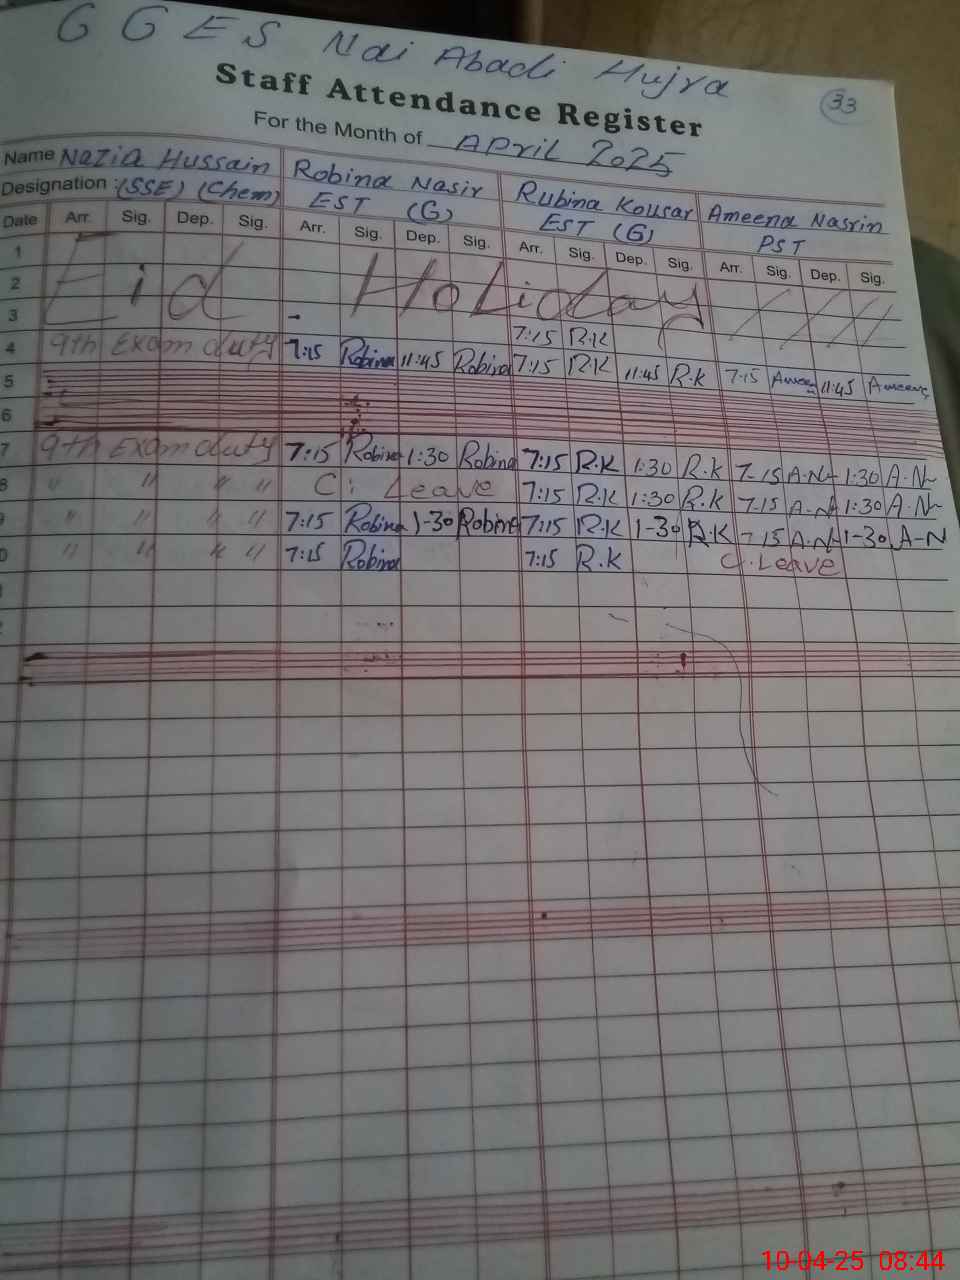 G G E S Nai Abadi Hujra
Staff Attendance Register
33
For the Month of April 2025
Name Nazia Hussain Robina Nasir Rubina Kousar Ameena Nasrin
Designation : (SSE) (Chem) EST (G) EST (G) PST
Date Arr. Sig. Dep. Sig. Arr. Sig. Dep. Sig. Arr. Sig. Dep. Sig. Arr. Sig. Dep. Sig.
1
2 Eid Holiday
3 7:15 R.K
4 9th Exam duty 7:15 Robina 11:45 Robina 7:15 R.K 11:45 R.K 7:15 Ameen 11:45 Ameena
5
6
7 9th Exam duty 7:15 Robina 1:30 Robina 7:15 R.K 1:30 R.K 7-15 A-N 1:30 A-N
8 " " " " C. Leave 7:15 R.K 1:30 R.K 7:15 A-N 1:30 A-N
" " " " 7:15 Robina 1-30 Robina 7:15 R.K 1-30 R.K 7-15 A.N 1-30 A-N
0 " " " " 7:15 Robina 7:15 R.K C. Leave
10-04-25 08:44